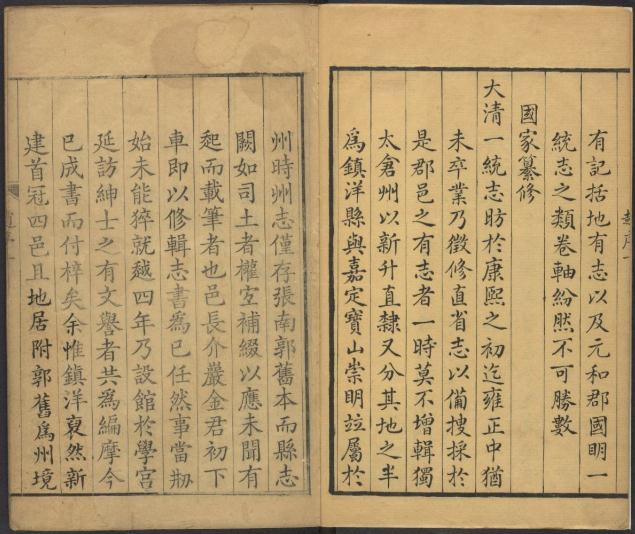 有記括地有志以及元和郡國明一
統志之類卷軸紛然不可勝數
國家纂修
大清一統志昉於康熙之初迄雍正中猶
未卒業乃徵修直省志以備搜採於
是郡邑之有志者一時莫不增輯獨
太倉州以新升直隸又分其地之半
爲鎮洋縣與嘉定寶山崇明竝屬於
州時州志僅存張南郭舊本而縣志
闕如司土者權宐補綴以應未聞有
起而載筆者也邑長介嚴金君初下
車即以修輯志書爲己任然事當刱
始未能猝就越四年乃設館於學宮
延訪紳士之有文譽者共爲編摩今
已成書而付梓矣余惟鎮洋裒然新
建首冠四邑且地居附郭舊爲州境